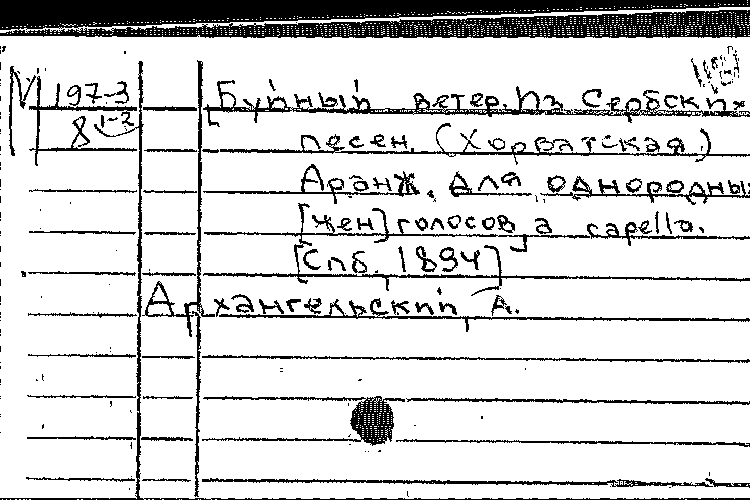 М 197-3
8 1-2
[Буйный ветер. Из Сербских
песен. (Хорватская)
Аранж. для однородных
[жен] голосов, a capella.]
[Спб, 1894]
Архангельский, А.